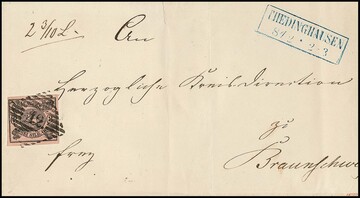 2 3/10 L.
An
THEDINGHAUSEN
8/12 * 2-3
Herzogliche Kreisdirection
zu
frey
Braunschweig
12